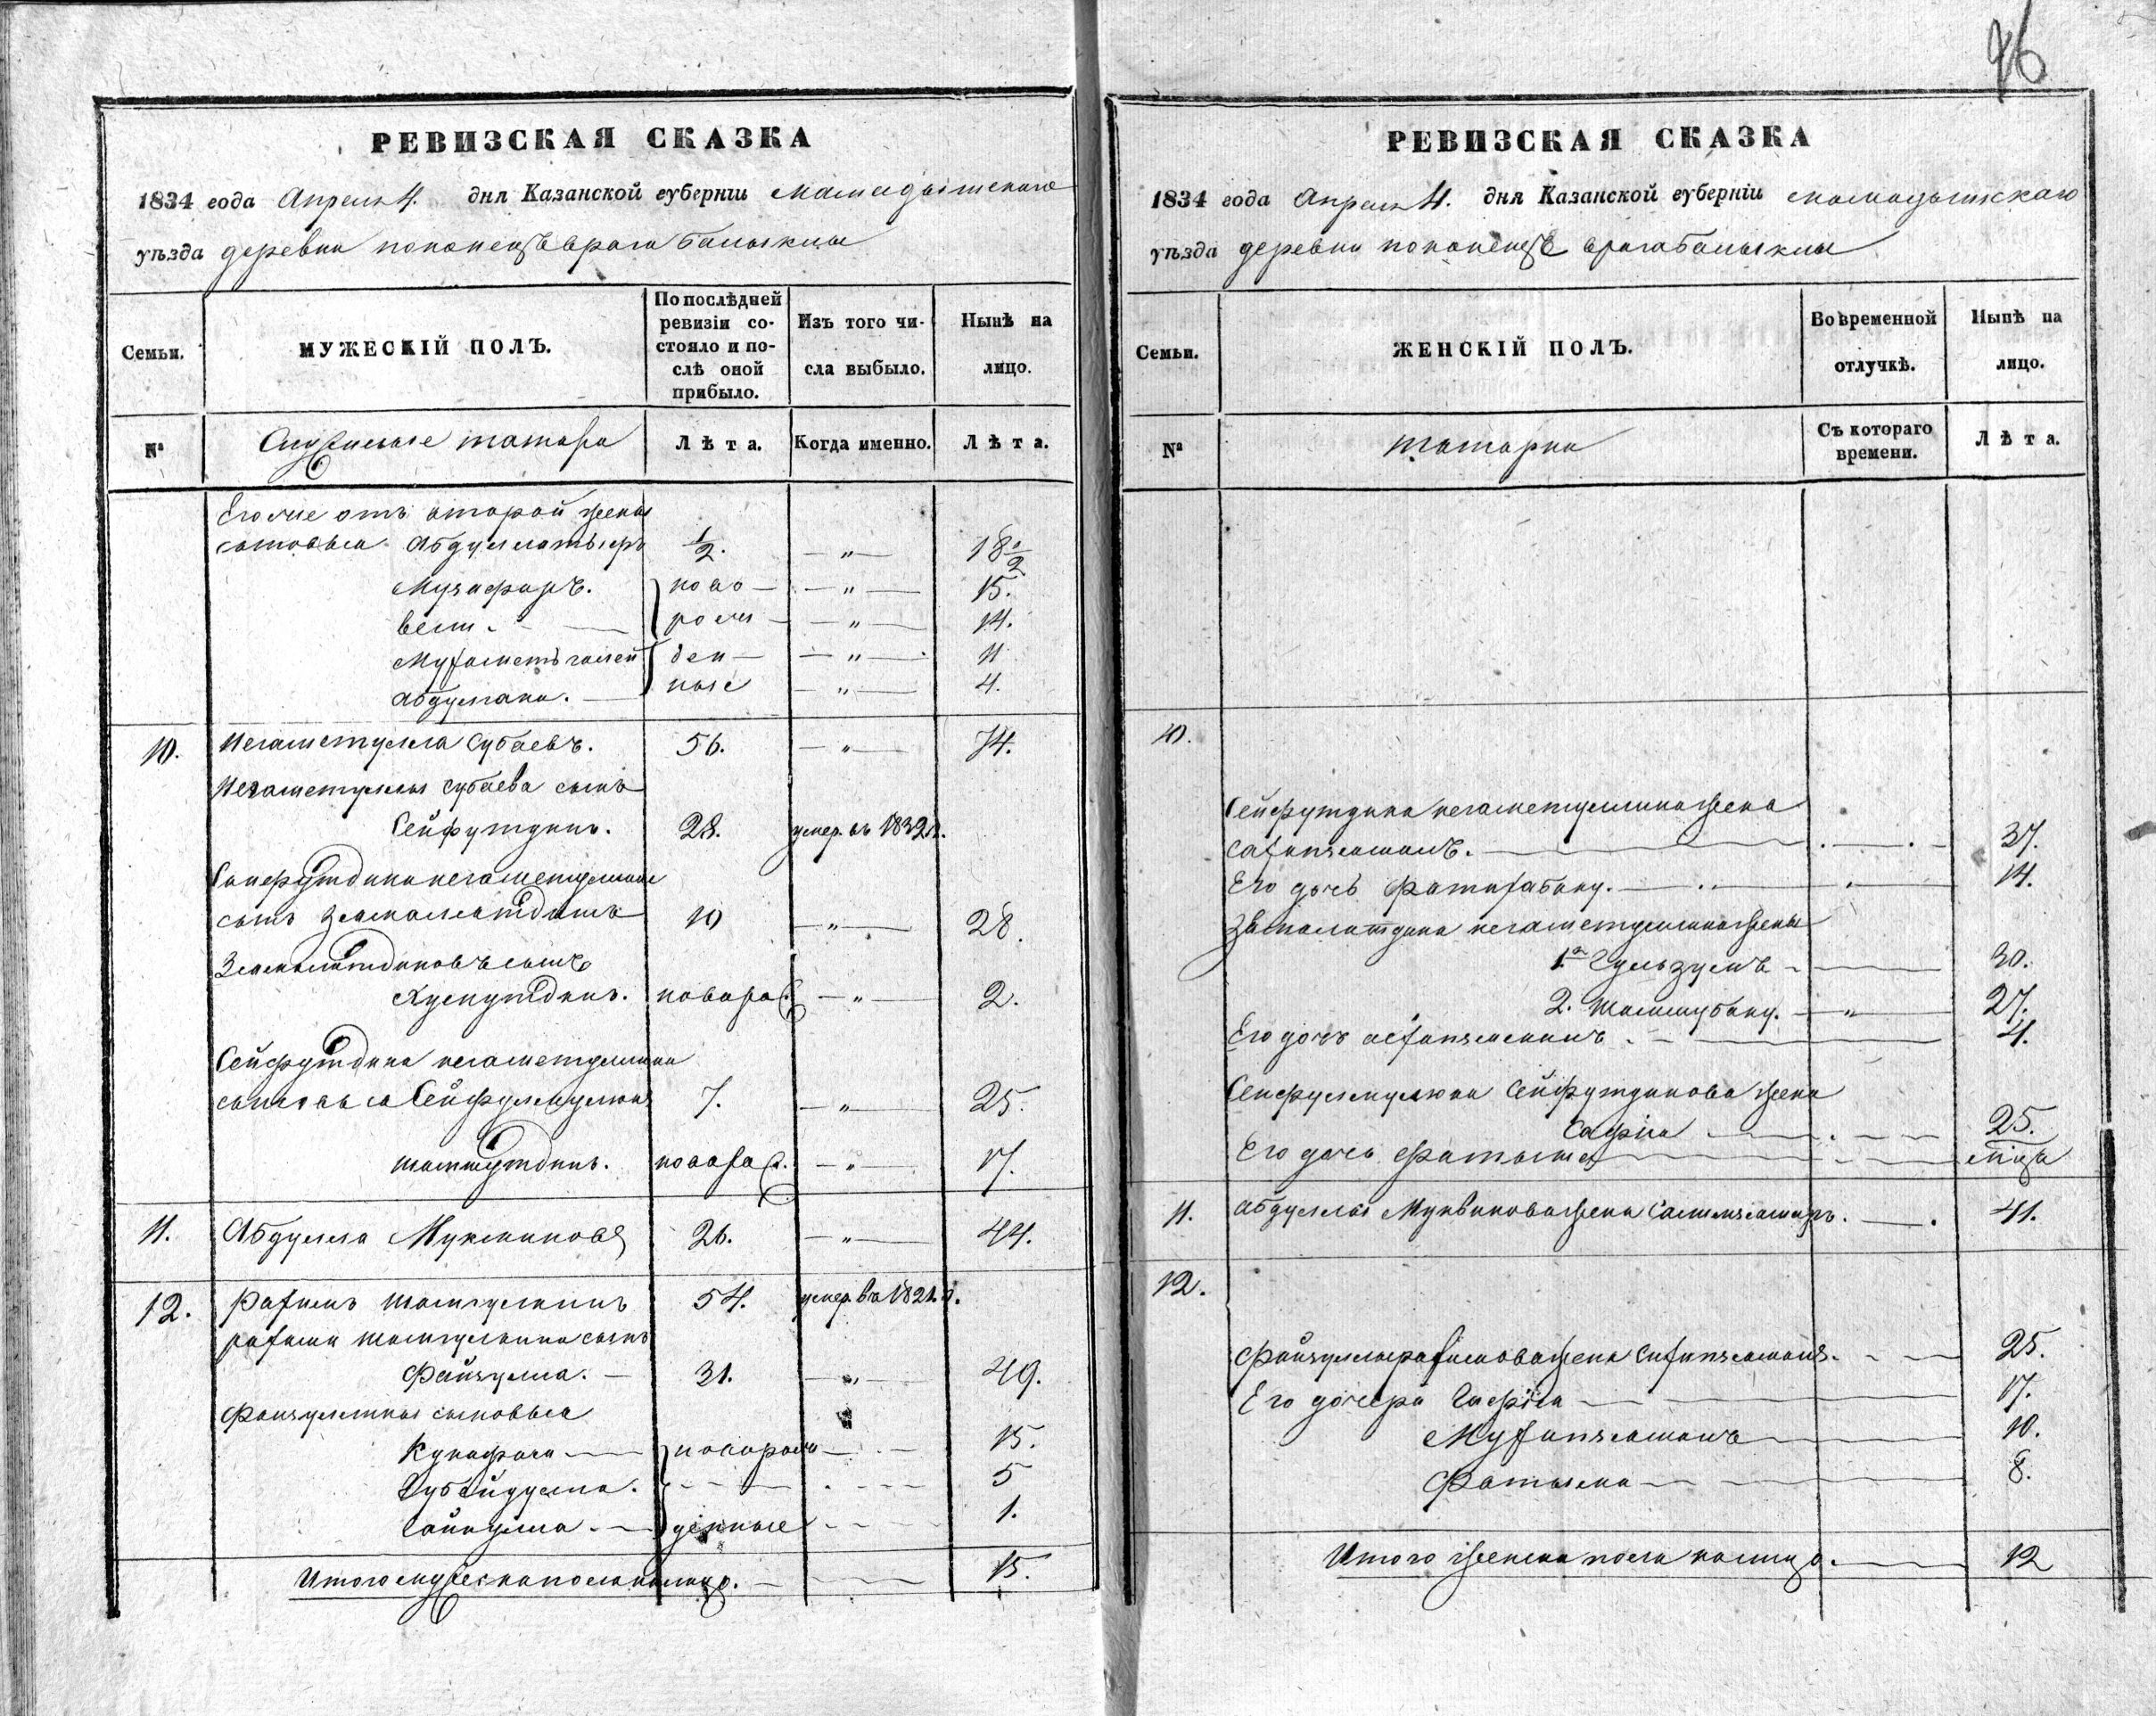 96
РЕВИЗСКАЯ СКАЗКА
1834 года Апреля 4. дня Казанской губерніи Мамадышскаго
уѣзда деревни поконецъ врага Балыклы
Семьи.
МУЖЕСКІЙ ПОЛЪ.
По послѣдней ревизіи состояло и послѣ оной прибыло.
Изъ того числа выбыло.
Нынѣ на лицо.
№
Служилые татара
Лѣта.
Когда именно.
Лѣта.
Его же отъ второй жены
сыновья Абдуллатыфъ ½. — " — 18½
Музафаръ. ново — " — 15.
Вели. рож — " — 14.
Мухаметъ галей ден — " — 11
Абдулгани. ные — " — 4.
10. Негаметулла Субаевъ. 56. — " — 74.
Негаметуллы Субаева сынъ
Сейфутдинъ. 28. умер. въ 1832 г.
Сейфутдина негаметуллина
сынъ Замалитдинъ 10 — " — 28.
Замалитдиновъ сынъ
Хуснутдинъ. новорож. — " — 2.
Сейфутдина негаметуллина
сыновья Сейфулмулюкъ 7. — " — 25.
Шамсутдинъ. новорож. — " — 17.
11. Абдулла Мукминовъ 26. — " — 44.
12. Рахимъ 54. умер. въ 1821 г.
рахима сынъ
Файзулла. — 31. — " — 49.
Файзуллины сыновья
новорож — 15.
Губайдулла. 5
Гайнулла. — денные 1.
Итого мужеска пола налицо. — 15.
РЕВИЗСКАЯ СКАЗКА
1834 года Апреля 4. дня Казанской губерніи Мамадышскаго
уѣзда деревни поконецъ врага Балыклы
Семьи.
ЖЕНСКІЙ ПОЛЪ.
Во временной отлучкѣ.
Нынѣ на лицо.
№
татарки
Съ котораго времени.
Лѣта.
10.
Сейфутдина негаметуллина жена
37.
Его дочь Фатихабану. — 14.
Замалитдина негаметуллина жены
1я Гульзумъ — 30.
2. Шамсубану. — " — 27.
Его дочь — 4.
Сейфулмулюка Сейфутдинова жена
Сафія — 25.
Его дочь Фатыма
11. Абдуллы Мукминова жена — 41.
12.
Файзуллы рахимова жена 25.
Его дочери Сафія — 17.
10.
Фатыма — 8.
Итого женска пола налицо. — 12